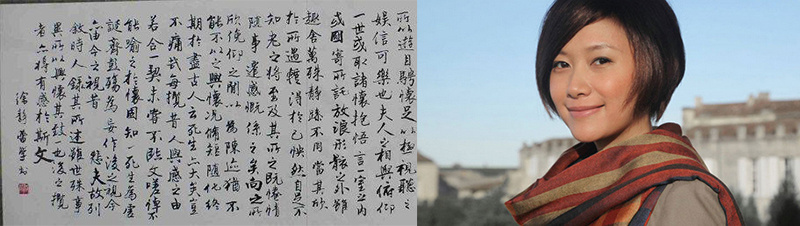 所以遊目騁懷足以極視聽之
娛信可樂也夫人之相與俯仰
一世或取諸懷抱悟言一室之內
或因寄所託放浪形骸之外雖
趣舍萬殊靜躁不同當其欣
於所遇暫得於己怏然自足不
知老之將至及其所之既倦情
隨事遷感慨係之矣向之所
欣俛仰之間以為陳迹猶不
能不以之興懷況脩短隨化終
期於盡古人云死生亦大矣豈
不痛哉每攬昔人興感之由
若合一契未嘗不臨文嗟悼不
能喻之於懷固知一死生為虛
誕齊彭殤為妄作後之視今
亦由今之視昔 悲夫故列
敘時人錄其所述雖世殊事
異所以興懷其致一也後之攬
者亦將有感於斯文
徐靜蕾學书